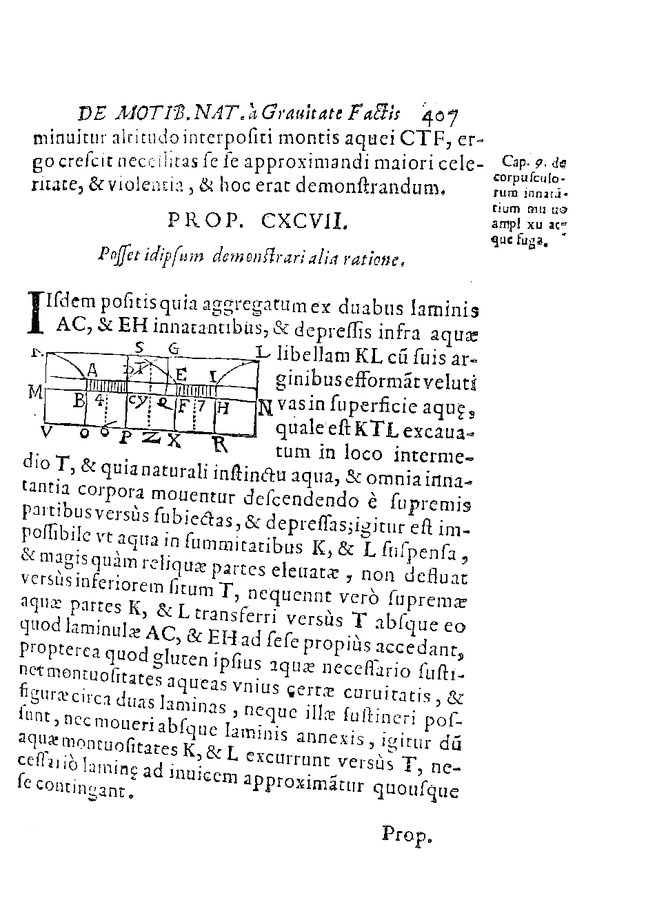 DE MOTIB. NAT. à Grauitate Factis 407
minuitur altitudo interpositi montis aquei CTF, er-
go crescit necessitas se se approximandi maiori cele-
ritate, & violentia, & hoc erat demonstrandum.
Cap. 9. de
corpusculo-
rum innatā-
tium mu uo
ampl xu ac
que fuga.
PROP. CXCVII.
Posset idipsum demonstrari alia ratione.
IIsdem positis quia aggregatum ex duabus laminis
AC, & EH innatantibus, & depressis infra aquæ
libellam KL cū suis ar-
ginibus efformāt veluti
vas in superficie aquę,
quale est KTL excaua-
tum in loco interme-
S G L
A E I
M B 4 cy F 7 H N
V o 6 P Z X R
dio T, & quia naturali instinctu aqua, & omnia inna-
tantia corpora mouentur descendendo è supremis
partibus versùs subiectas, & depressas; igitur est im-
possibile vt aqua in summitatibus K, & L suspensa,
& magis quàm reliquæ partes eleuatæ, non defluat
versùs inferiorem situm T, nequennt verò supremæ
aquæ partes K, & L transferri versùs T absque eo
quod laminulæ AC, & EH ad sese propiùs accedant,
propterea quod gluten ipsius aquæ necessario susti-
net montuositates aqueas vnius çertæ curuitatis, &
figuræ circa duas laminas, neque illæ sustineri pos-
sunt, nec moueri absque laminis annexis, igitur dū
aquæ montuositates K, & L excurrunt versùs T, ne-
cessariò laminę ad inuicem approximātur quousque
se contingant.
Prop.